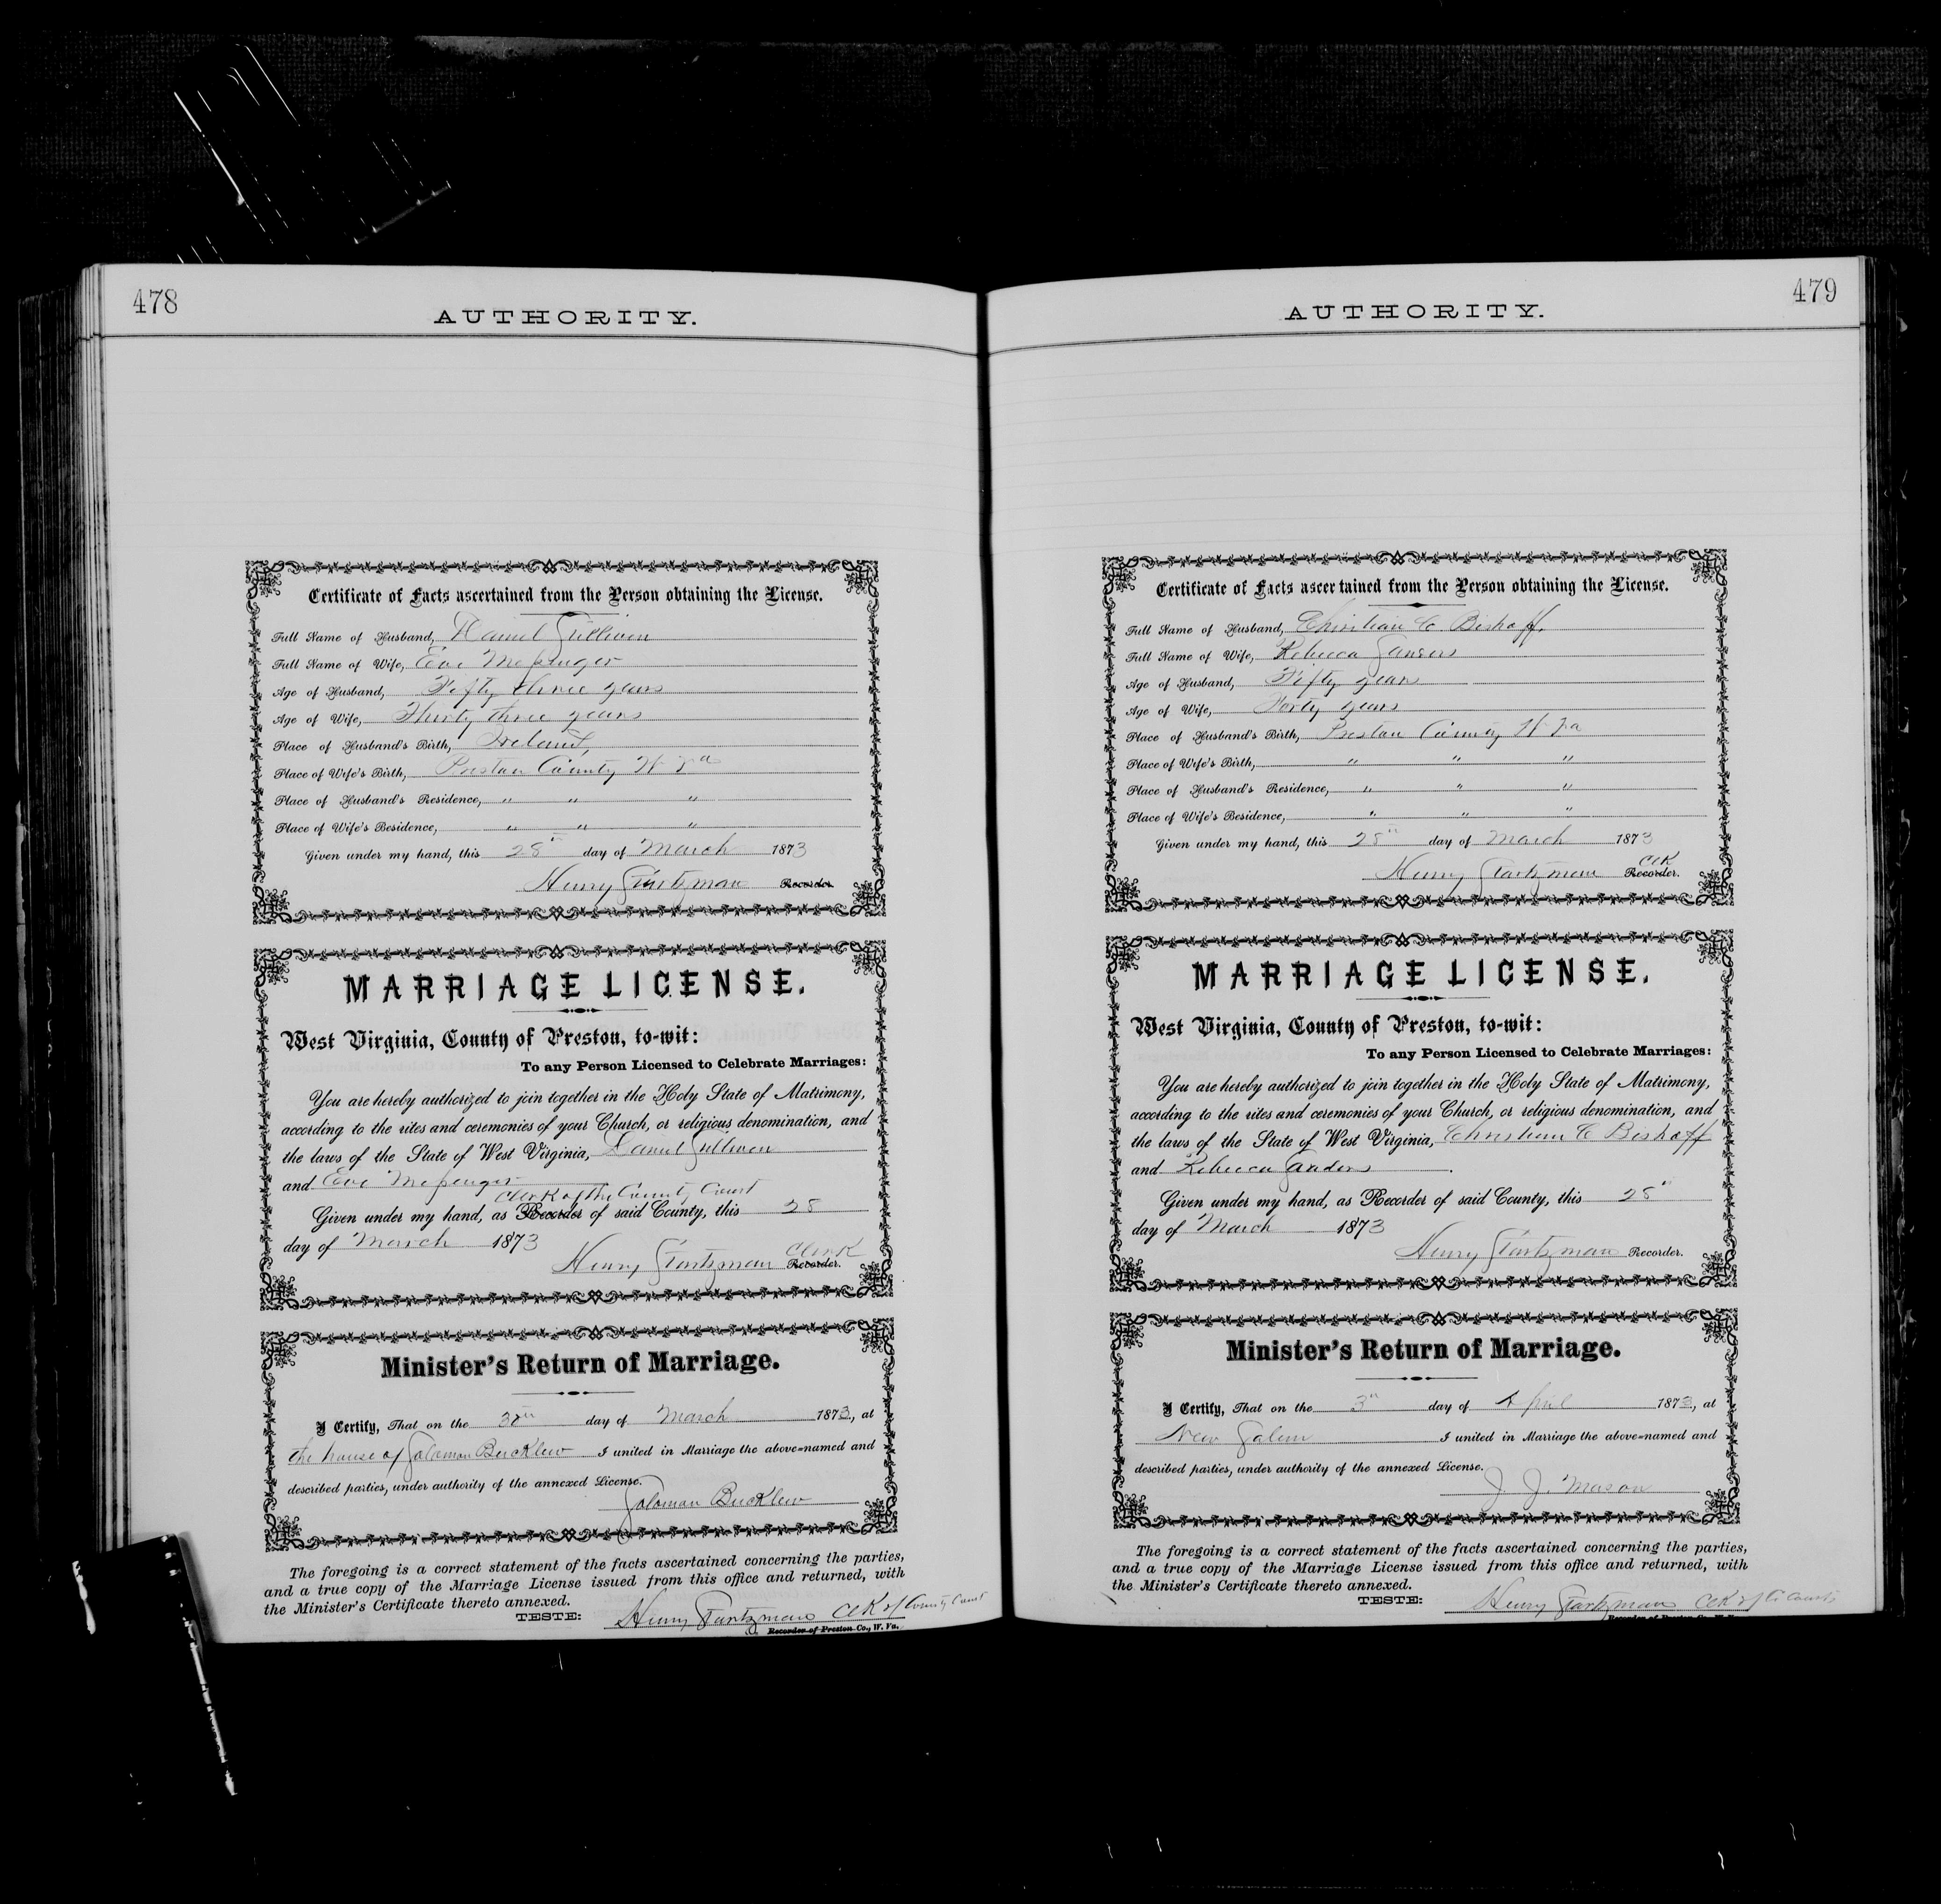 478
AUTHORITY.
Certificate of Facts ascertained from the Person obtaining the License.
Full Name of Husband, Daniel Sullivan
Full Name of Wife, Eve Messenger
Age of Husband, Fifty three years
Age of Wife, Thirty three years
Place of Husband's Birth, Ireland,
Place of Wife's Birth, Preston County W Va
Place of Husband's Residence, " " "
Place of Wife's Residence, " " "
Given under my hand, this 28th day of March 1873
Henry Startzman Recorder.
MARRIAGE LICENSE.
West Virginia, County of Preston, to-wit:
To any Person Licensed to Celebrate Marriages:
You are hereby authorized to join together in the Holy State of Matrimony,
according to the rites and ceremonies of your Church, or religious denomination, and
the laws of the State of West Virginia, Daniel Sullivan
and Eve Messenger
Clerk of the County Court
Given under my hand, as Recorder of said County, this 28
day of March 1873
Clerk
Henry Startzman Recorder.
Minister's Return of Marriage.
I Certify, That on the day of March 1873, at
the house of Solomon Bucklew I united in Marriage the above-named and
described parties, under authority of the annexed License.
Solomon Bucklew
The foregoing is a correct statement of the facts ascertained concerning the parties,
and a true copy of the Marriage License issued from this office and returned, with
the Minister's Certificate thereto annexed.
TESTE: Henry Startzman Clk of County Court
Recorder of Preston Co., W. Va.
479
AUTHORITY.
Certificate of Facts ascertained from the Person obtaining the License.
Full Name of Husband, Christian C. Bishoff.
Full Name of Wife, Rebecca
Age of Husband, Fifty years
Age of Wife, Forty years
Place of Husband's Birth, Preston County W Va
Place of Wife's Birth, " " "
Place of Husband's Residence, " " "
Place of Wife's Residence, " " "
Given under my hand, this 28th day of March 1873
Clk
Henry Startzman Recorder.
MARRIAGE LICENSE.
West Virginia, County of Preston, to-wit:
To any Person Licensed to Celebrate Marriages:
You are hereby authorized to join together in the Holy State of Matrimony,
according to the rites and ceremonies of your Church, or religious denomination, and
the laws of the State of West Virginia, Christian C Bishoff
and Rebecca
Given under my hand, as Recorder of said County, this 28"
day of March 1873
Henry Startzman Recorder.
Minister's Return of Marriage.
I Certify, That on the 3" day of April 1873, at
New Salem I united in Marriage the above-named and
described parties, under authority of the annexed License.
J. J. Mason
The foregoing is a correct statement of the facts ascertained concerning the parties,
and a true copy of the Marriage License issued from this office and returned, with
the Minister's Certificate thereto annexed.
TESTE: Henry Startzman Clk of Co Courts
Recorder of Preston Co., W. Va.